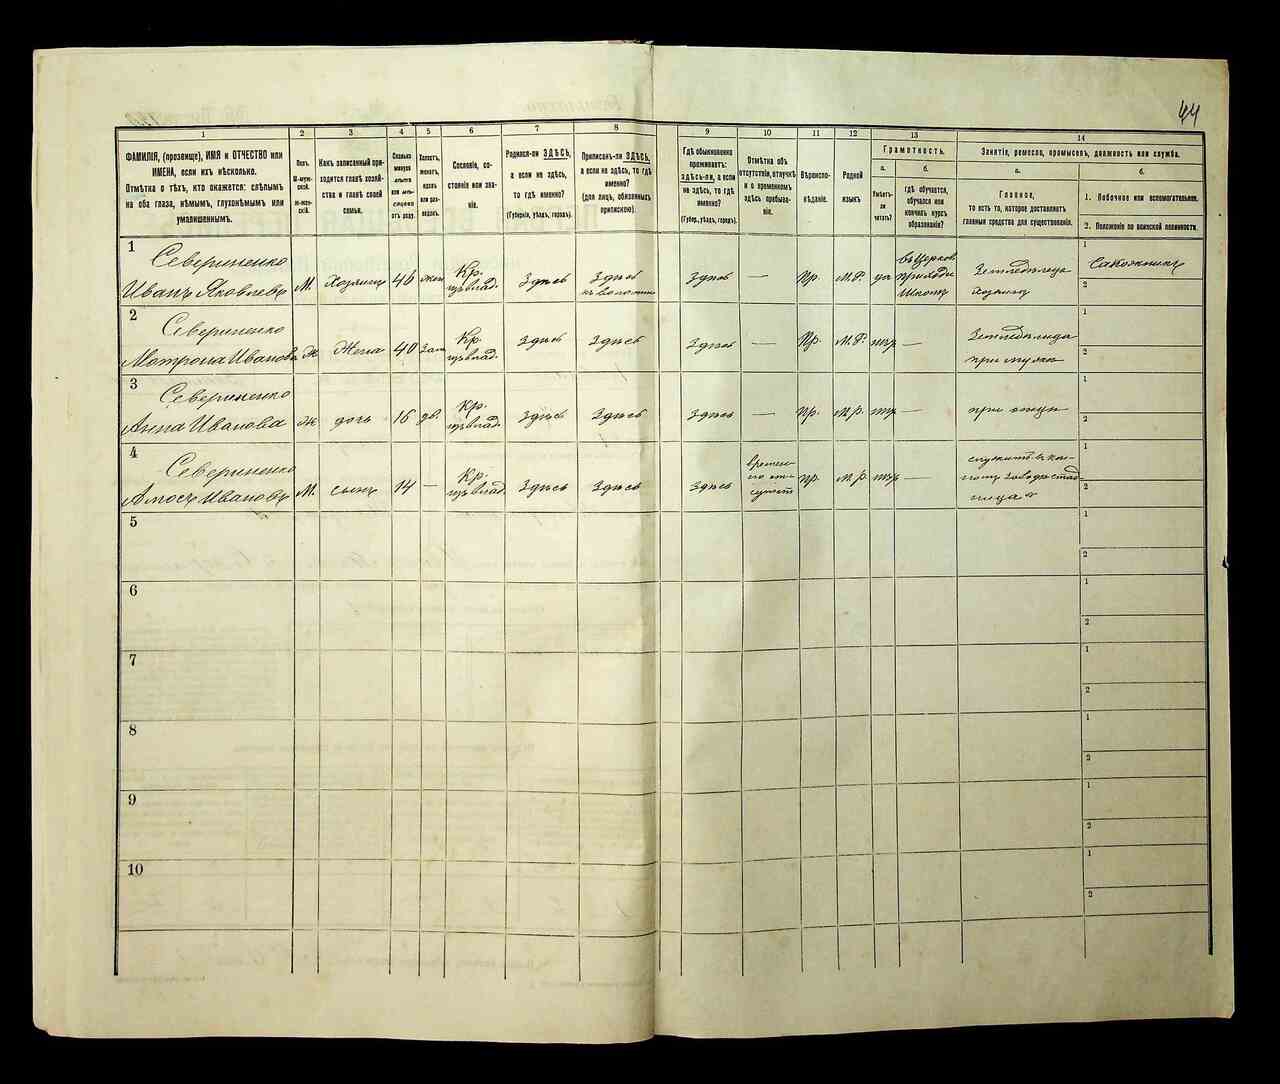 44
1 2 3 4 5 6 7 8 9 10 11 12 13 14
ФАМИЛІЯ, (прозвище), ИМЯ и ОТЧЕСТВО или
ИМЕНА, если ихъ нѣсколько.
Отмѣтка о тѣхъ, кто окажется: слѣпымъ
на оба глаза, нѣмымъ, глухонѣмымъ или
умалишеннымъ.
Полъ.
М-муж-
ской.
Ж-жен-
скій.
Какъ записанный при-
ходится главѣ хозяй-
ства и главѣ своей
семьи.
Сколько
минуло
лѣтъ
или мѣ-
сяцевъ
отъ роду.
Холостъ,
женатъ,
вдовъ
или раз-
веденъ.
Сословіе, со-
стояніе или зва-
ніе.
Родился-ли ЗДѢСЬ,
а если не здѣсь,
то гдѣ именно?
(Губернія, уѣздъ, городъ).
Приписанъ-ли ЗДѢСЬ,
а если не здѣсь, то гдѣ
именно?
(для лицъ, обязанныхъ
припискою).
Гдѣ обыкновенно
проживаетъ:
ЗДѢСЬ-ЛИ, а если
не здѣсь, то гдѣ
именно?
(Губер., уѣздъ, городъ).
Отмѣтка объ
отсутствіи, отлучкѣ
и о временномъ
здѣсь пребыва-
ніи.
Вѣроиспо-
вѣданіе.
Родной
языкъ
Грамотность.
а.
Умѣетъ-
ли
читать?
б.
гдѣ обучается,
обучался или
кончилъ курсъ
образованія?
Занятіе, ремесло, промыселъ, должность или служба.
а.
Главное,
то есть то, которое доставляетъ
главныя средства для существованія.
б.
1. Побочное или вспомогательное.
2. Положеніе по воинской повинности.
1
Севериненко
Иванъ Яковлевъ М. Хозяинъ 46 жен Кр. изъ влад. Здѣсь Здѣсь къ волости Здѣсь — Пр. М.Р. да въ Церков приходс Школѣ Земледѣлецъ хозяинъ
1 Сапожникъ
2
2
Севериненко
Мотрона Иванова Ж Жена 40 Зам Кр. изъ влад. Здѣсь Здѣсь Здѣсь — Пр. М.Р. нѣт — Земледѣлица при мужѣ
1
2
3
Севериненко
Анна Иванова Ж дочь 16 дв. Кр. изъ влад. Здѣсь Здѣсь Здѣсь — Пр. М.р. нѣт — при отцѣ
1
2
4
Севериненко
Амосъ Ивановъ М. сынъ 14 — Кр. изъ влад. Здѣсь Здѣсь Здѣсь времен- Пр. М.р. нѣт —
1
2
5
1
2
6
1
2
7
1
2
8
1
2
9
1
2
10
1
2